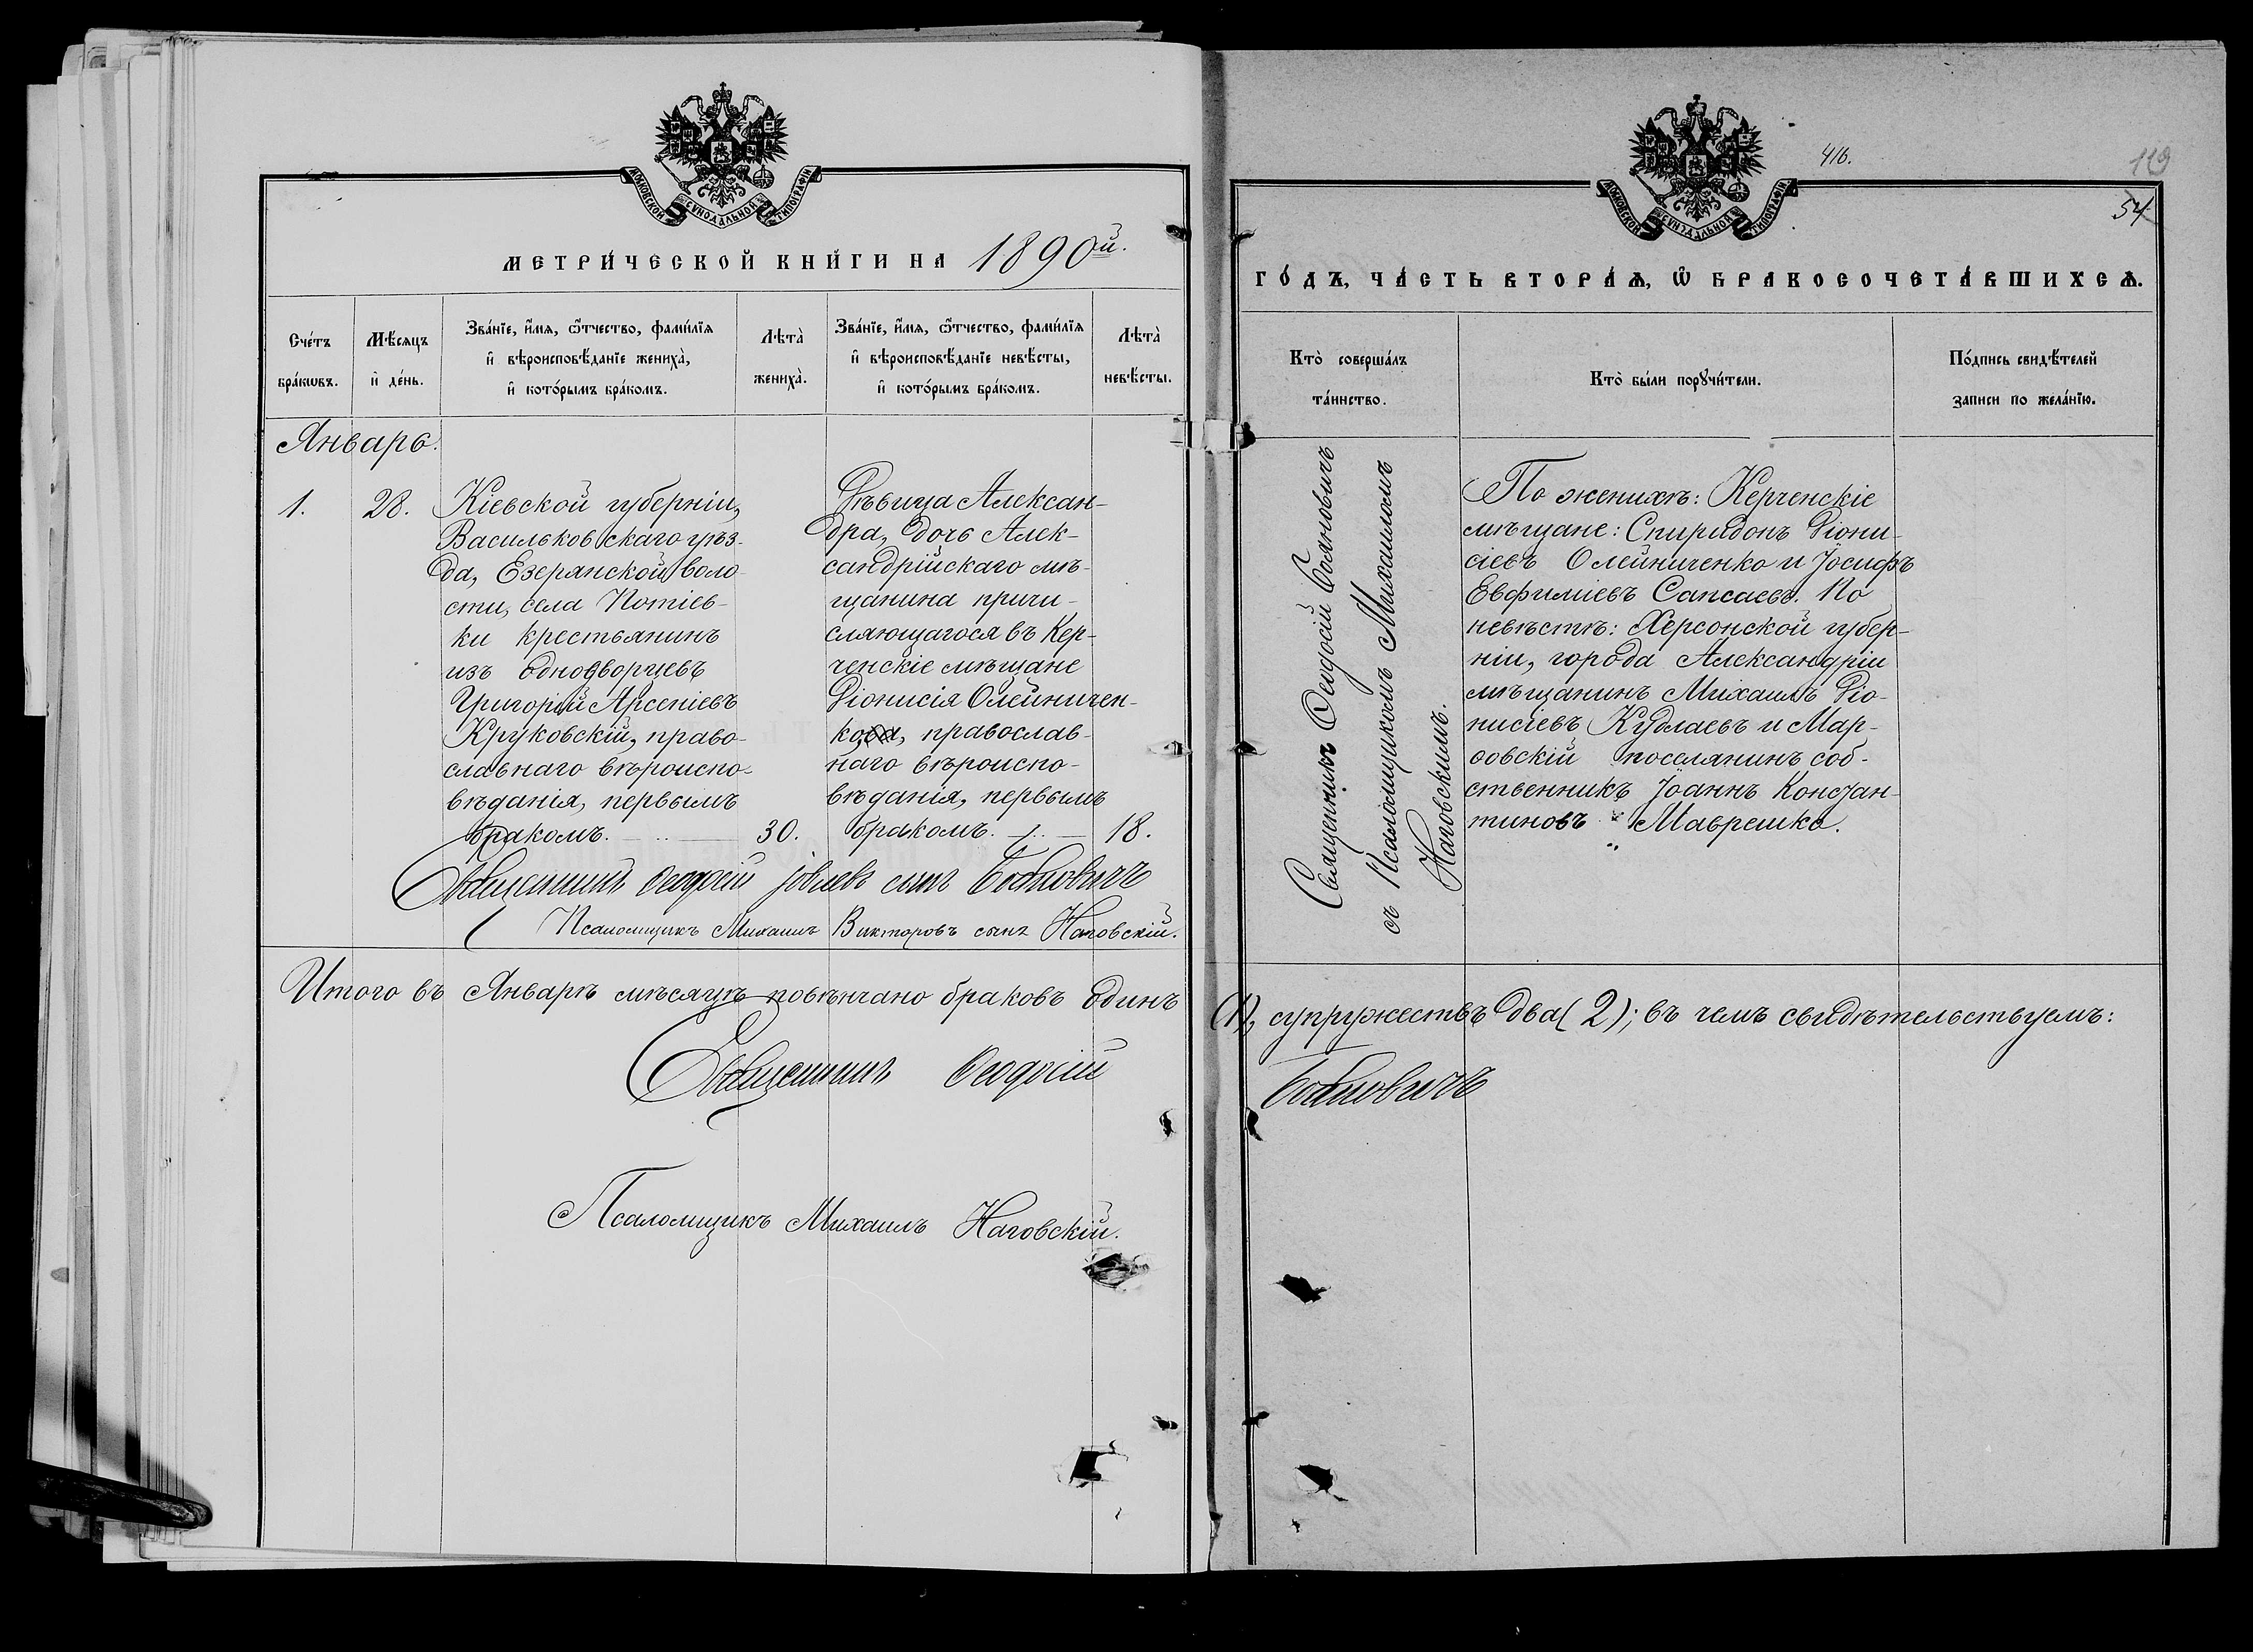 МОСКОВСКОЙ СѴНОДАЛЬНОЙ ТИПОГРАФІИ
МЕТРИ́ЧЕСКОЙ КНИ́ГИ НА 1890й.
Сче́тъ бра́кѡвъ.
Мѣ́сяцъ и҆ де́нь.
Зва́нїе, и҆́мѧ, ѻ҆́тчество, фами́лїѧ
и҆ вѣроисповѣ́данїе жениха̀,
и҆ кото́рымъ бра́комъ.
Лѣта̀ жениха̀.
Зва́нїе, и҆́мѧ, ѻ҆́тчество, фами́лїѧ
и҆ вѣроисповѣ́данїе невѣ́сты,
и҆ кото́рымъ бра́комъ.
Лѣта̀ невѣ́сты.
Январь.
1.
28.
Кіевской губерніи,
Васильковскаго уѣз-
да, Езерянской воло-
сти, села Потіев-
ки крестьянинъ
изъ однодворцевъ
Григорій Арсеніевъ
Круковскій, право-
славнаго вѣроиспо-
вѣданія, первымъ
бракомъ.
30.
Дѣвица Алексан-
дра, дочь Алек-
сандрійскаго мѣ-
щанина причи-
сляющагося въ Кер-
ченскіе мѣщане
Діонисія Олейничен-
кова, православ-
наго вѣроиспо-
вѣданія, первымъ
бракомъ.
18.
Священникъ Ѳеодосій Іовлевъ сынъ Бояновичъ
Псаломщикъ Михаилъ Викторовъ сынъ Наговскій.
Итого въ Январѣ мѣсяцѣ повѣнчано браковъ одинъ
Священникъ Ѳеодосій
Псаломщикъ Михаилъ Наговскій.
416.
119
54
МОСКОВСКОЙ СѴНОДАЛЬНОЙ ТИПОГРАФІИ
ГО́ДЪ, ЧА́СТЬ ВТОРА́Ѧ, Ѡ҆ БРАКОСОЧЕТА́ВШИХСѦ.
Кто̀ соверша́лъ
та́инство.
Кто̀ бы́ли порꙋчи́тели.
По́дпись свидѣ́телей
записи по жела́нїю.
Священникъ Ѳеодосій Бояновичъ
съ Псаломщикомъ Михаиломъ
Наговскимъ.
По женихѣ: Керченскіе
мѣщане: Спиридонъ Діони-
сіевъ Олейниченко и Іосифъ
Евфиміевъ Сапсаевъ. По
невѣстѣ: Херсонской губер-
ніи, города Александріи
мѣщанинъ Михаилъ Діо-
нисіевъ Кудлаевъ и Мар-
ѳовскій поселянинъ соб-
ственникъ Іоаннъ Констан-
тиновъ Маврешко.
(1), супружествъ два (2); въ чемъ свидѣтельствуемъ:
Бояновичъ